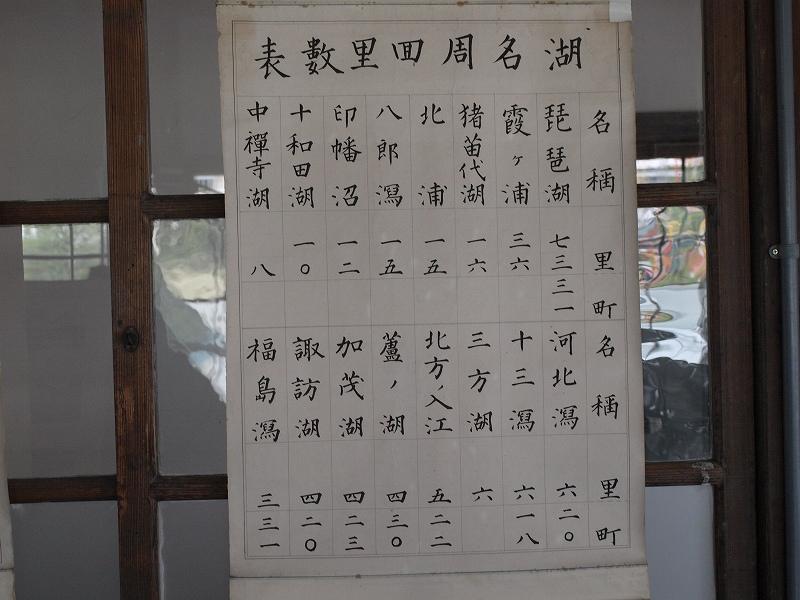 湖名周囬里數表
名稱 里 町
琵琶湖 七三 三一
霞ヶ浦 三六
猪苗代湖 一六
北浦 一五
八郎潟 一五
印幡沼 一二
十和田湖 一〇
中禪寺湖 八
名稱 里 町
河北潟 六 二〇
十三潟 六 一八
三方湖 六
北方ノ入江 五 二二
蘆ノ湖 四 三〇
加茂湖 四 二三
諏訪湖 四 二〇
福島潟 三 三一